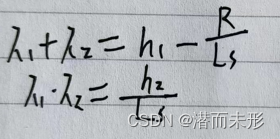 λ₁+λ₂ = h₁ - R/Ls
λ₁·λ₂ = h₂/Ls
CSDN @潜而未形